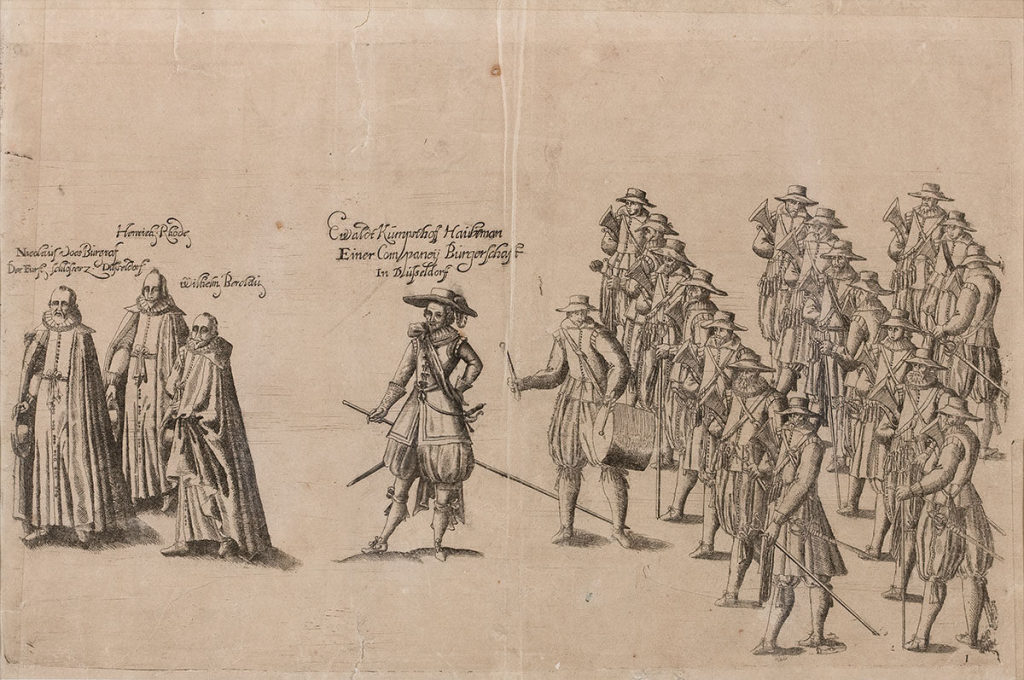 Henrich Rhode
Nicolaus Voos Burgraf
Der Furst. schlosser z Dusseldorf
Wilhelm Beroldij
Ewaldt Kumpsthof Haubtman
Einer Companeij Burgerschaft
In Düsseldorf
1